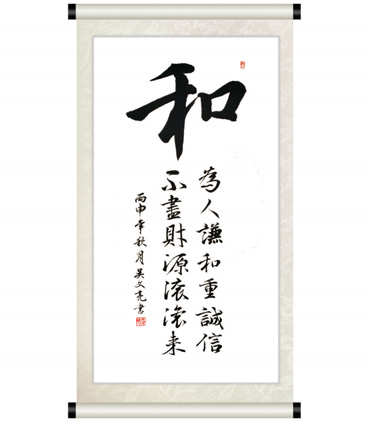 和
為人謙和重誠信
不盡財源滾滾來
丙申年秋月吴文亮書